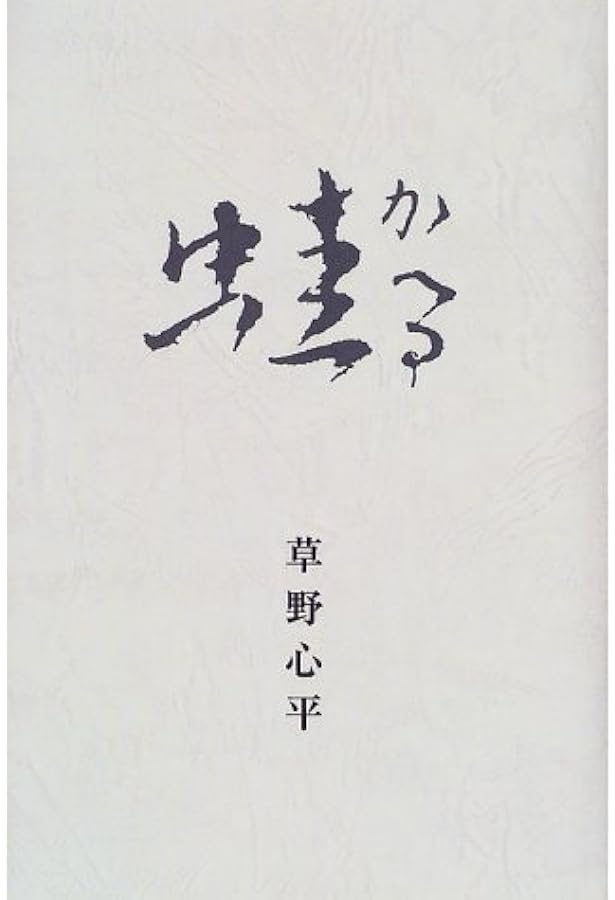 蛙
かへる
草野心平